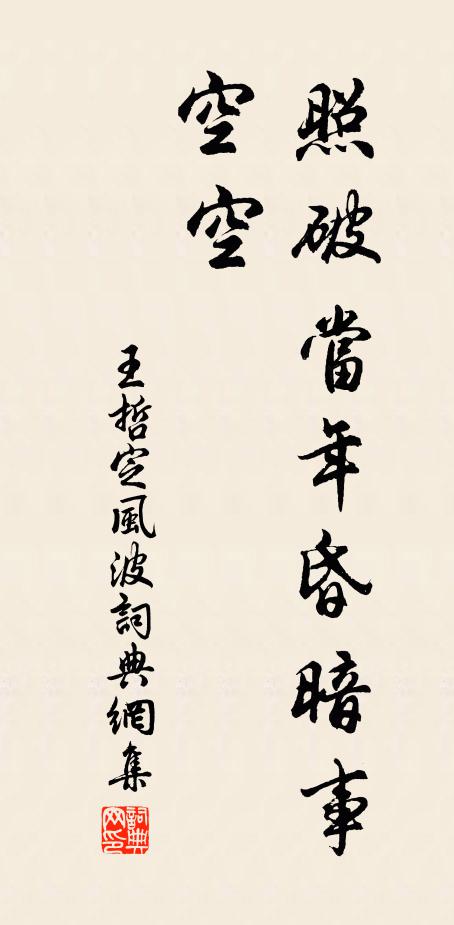 照破當年昏暗事
空空
王哲定風波詞典網集
詞典網印